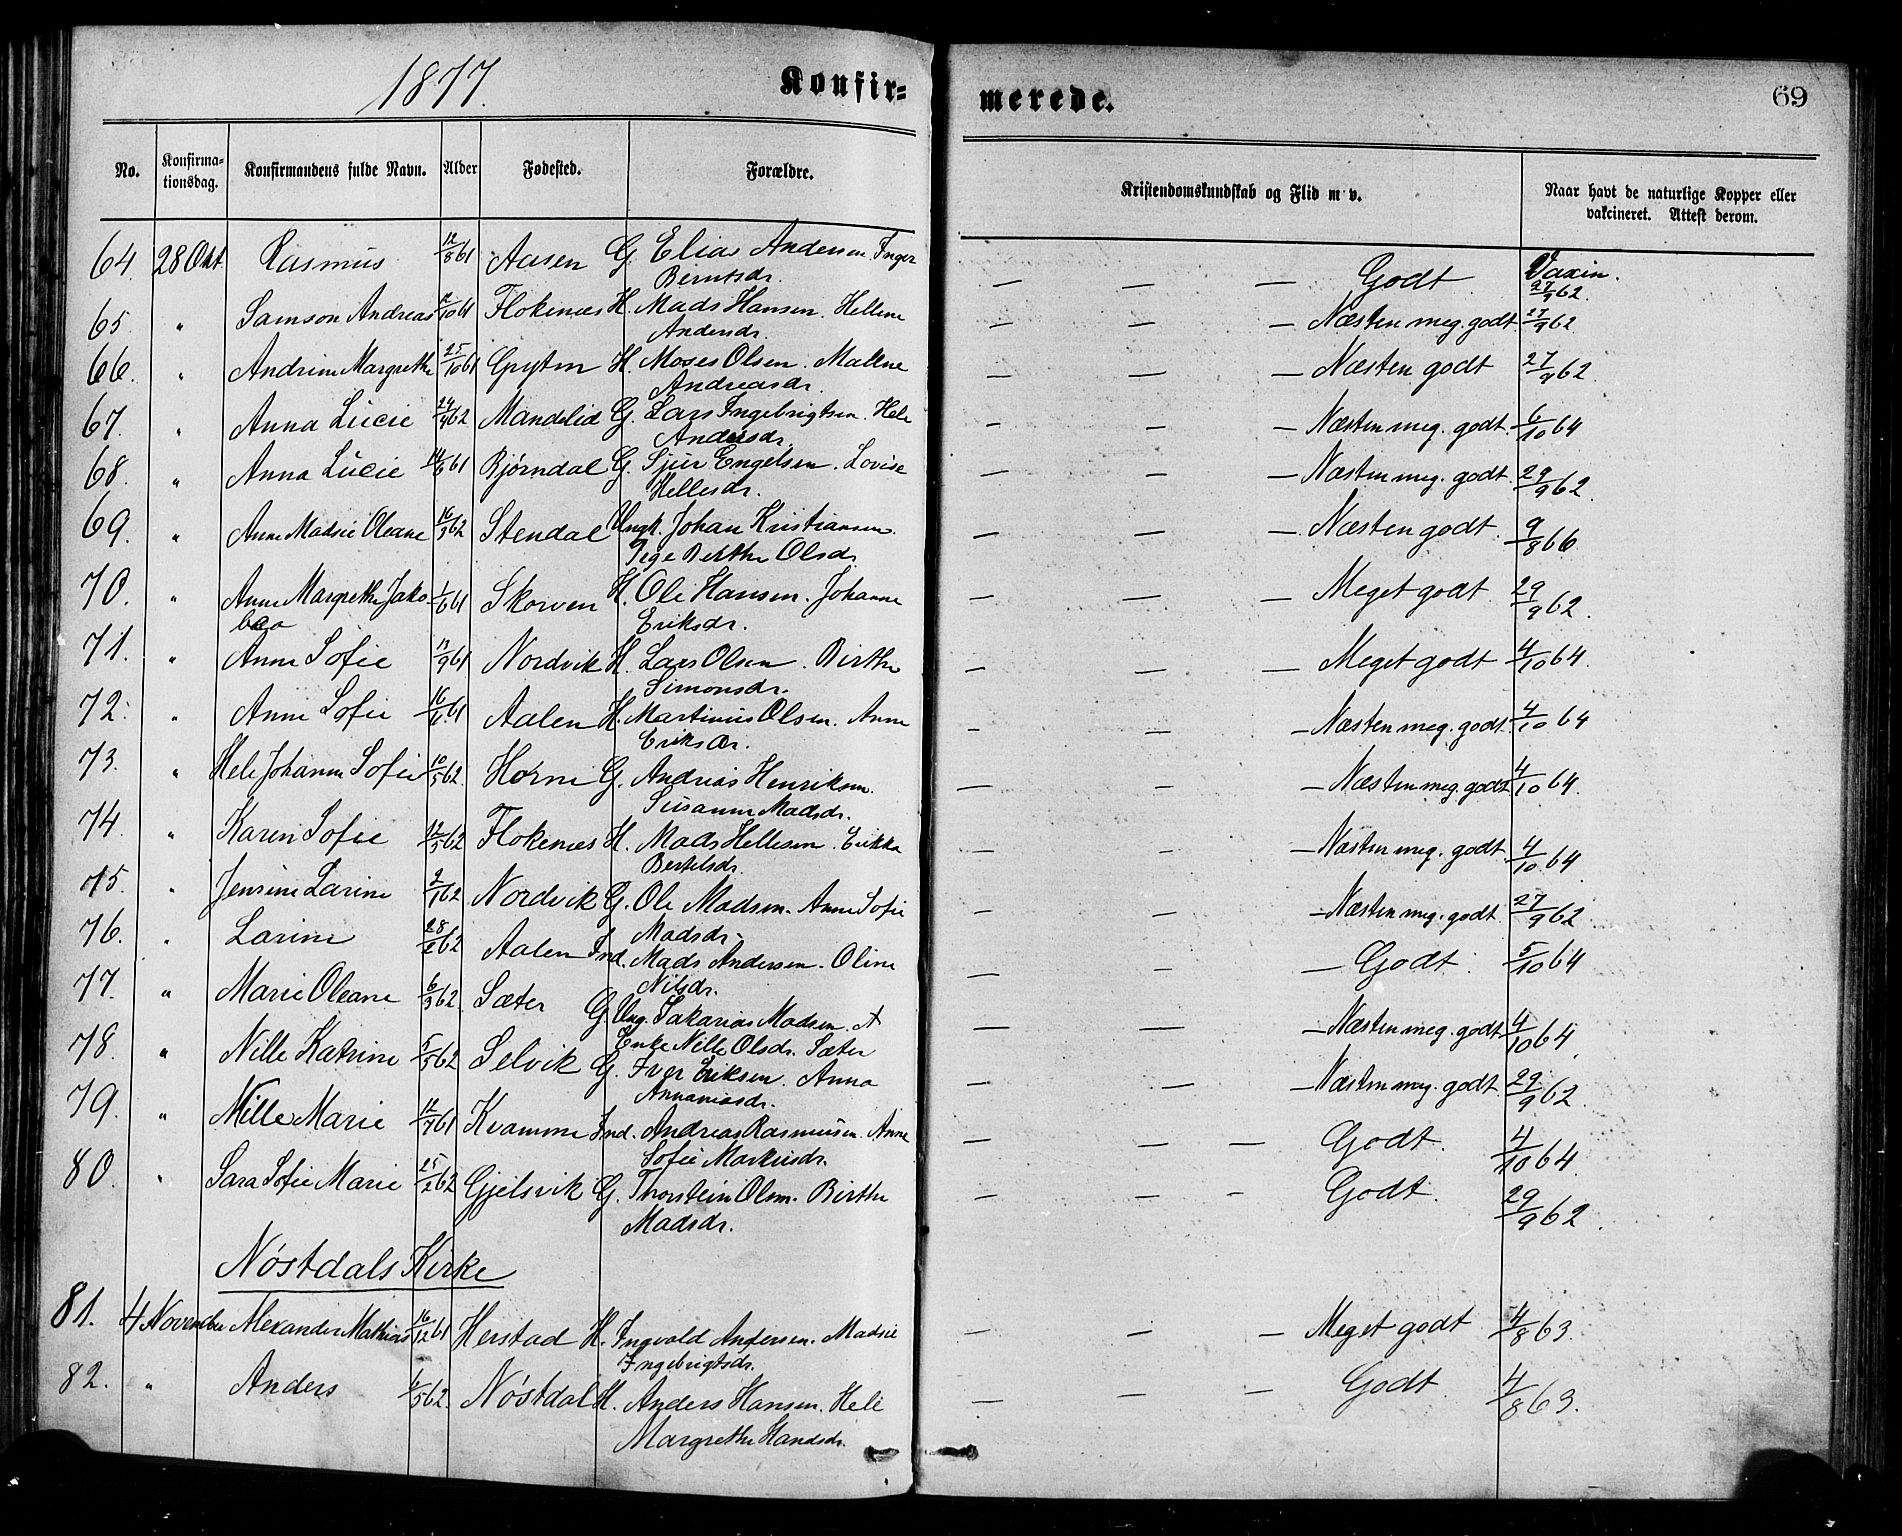 1877.
Konfir-
merede.
69
No. Konfirma-tionsdag. Konfirmandens fulde Navn. Alder Fødested. Forældre. Kristendomskundskab og Flid m v. Naar havt de naturlige Kopper eller vakcineret. Attest derom.
64. 28 Okt. Rasmus 12/8 61 Aasen G. Elias Andersen Inger — — — Godt Vaxin.
Berntsdr. 27/9 62.
65. " Samson Andreas /10 61 Flokenæs H. Mads Hansen. Hellene — — — Næsten meg. godt 27/9 62
Andersdr.
66. " Andrine Margrethe 25/10 61 Gryten H. Moses Olsen. Mallene — — — Næsten godt 27/9 62.
Andreasdr.
67. " Anna Lucie 24/4 62 Mandelid G. Lars Ingebrigtsen. Hele — — — Næsten meg. godt. 6/10 64
Andersdr.
68. " Anna Lucie 14/6 61 Bjørndal G. Sjur Engelsen. Lovise — — — Næsten meg. godt. 29/9 62.
Hellesdr.
69. " Anne Madsie Oleane 16/3 62 Stendal Ungk. Johan Kristiansen. — — — Næsten godt. 9/8 66
Pige Berthe Olsdr.
70. " Anne Margrethe Jako 1/6 61 Skorven H. Ole Hansen. Johanne — — — Meget godt. 29/9 62.
bea Eriksdr.
71. " Anne Sofie 13/9 61 Nordvik H. Lars Olsen. Birthe — — — Meget godt 4/10 64.
Simonsdr.
72. " Anne Sofie 16/11 61 Aalen H. Martinus Olsen. Anne — — — Næsten meg. godt. 4/10 64
Eriksdr.
73. " Hele Johanne Sofie 10/5 62. Horne G. Andreas Henriksen. — — — Næsten meg. godt 4/10 64.
Susanne Madsdr.
74. " Karen Sofie 12/5 62 Flokenæs H. Mads Hellesen. Erikka — — — Næsten meg. godt. 4/10 64.
Bertelsdr.
75. " Jensine Larine 2/1 62 Nordvik G. Ole Madsen. Anne Sofie — — — Næsten meg. godt. 27/9 62.
Madsdr.
76. " Larine 28/2 62 Aalen Ind. Mads Andersen. Oline — — — Godt. 5/10 64
Nilsdr.
77. " Marie Oleane 6/3 62 Sæter G. Ung. Sakarias Madsen. — — — Næsten meg. godt 4/10 64.
Enke Nille Olsdr. Sæter
78. " Nille Katrine 5/5 62 Selvik G. Iver Eriksen. Anna — — — Næsten meg. godt. 29/9 62.
Annaniasdr.
79. " Nille Marie 12/7 61 Kvamme Ind. Andreas Rasmussen. Anne — — — Godt. 4/10 64.
Sofie Markusdr.
80. " Sara Sofie Marie 25/2 62 Gjelsvik G. Thorstein Olsen. Birthe — — — Godt. 29/9 62.
Madsdr.
Nøstdals Kirke
81. 4 November Alexander Mathias 16/12 61 Herstad H. Ingvald Andersen. Madsie — — — Meget godt 4/8 63.
Ingebrigtsdr.
82. " Anders /5 62. Nøstdal H. Anders Hansen. Hele — — — Godt. 4/8 63.
Margrethe Hansdr.